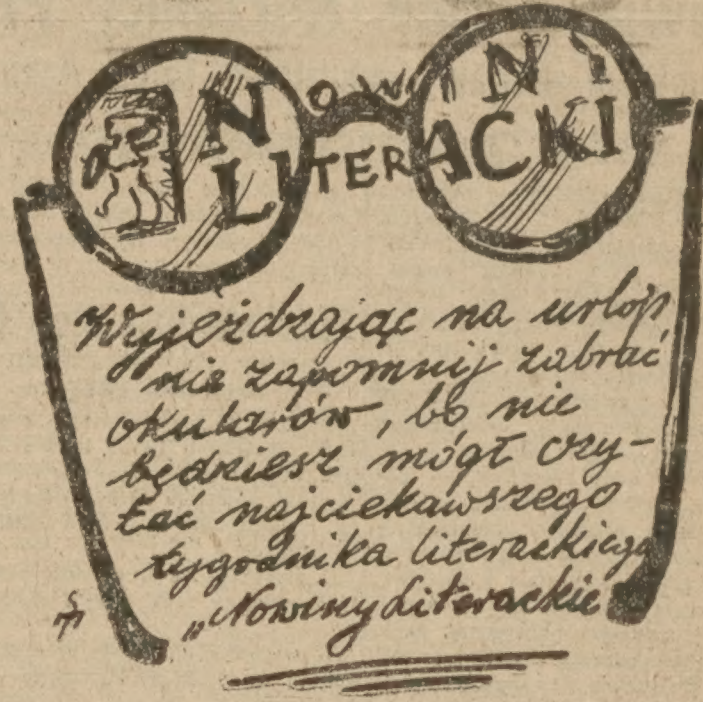 NOWINY
LITERACKI
Wyjeżdzając na urlop
nie zapomnij zabrać
okularów, bo nie
będziesz mógł czy-
tać najciekawszego
tygodnika literackiego
„Nowiny Literackie